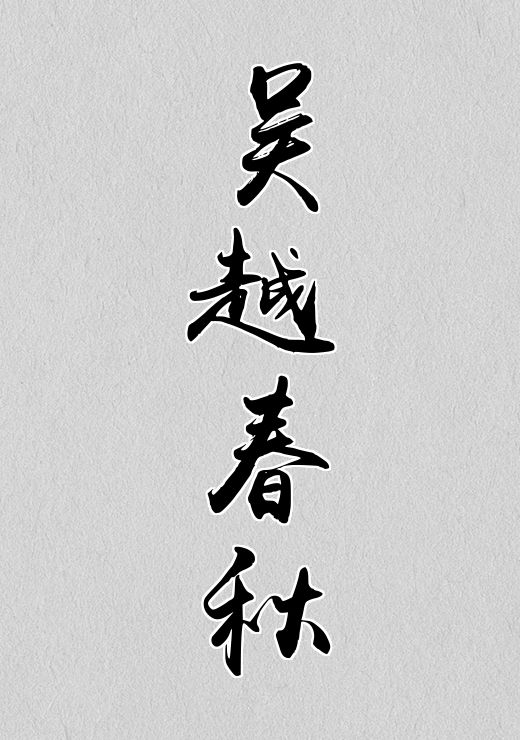 吴越春秋